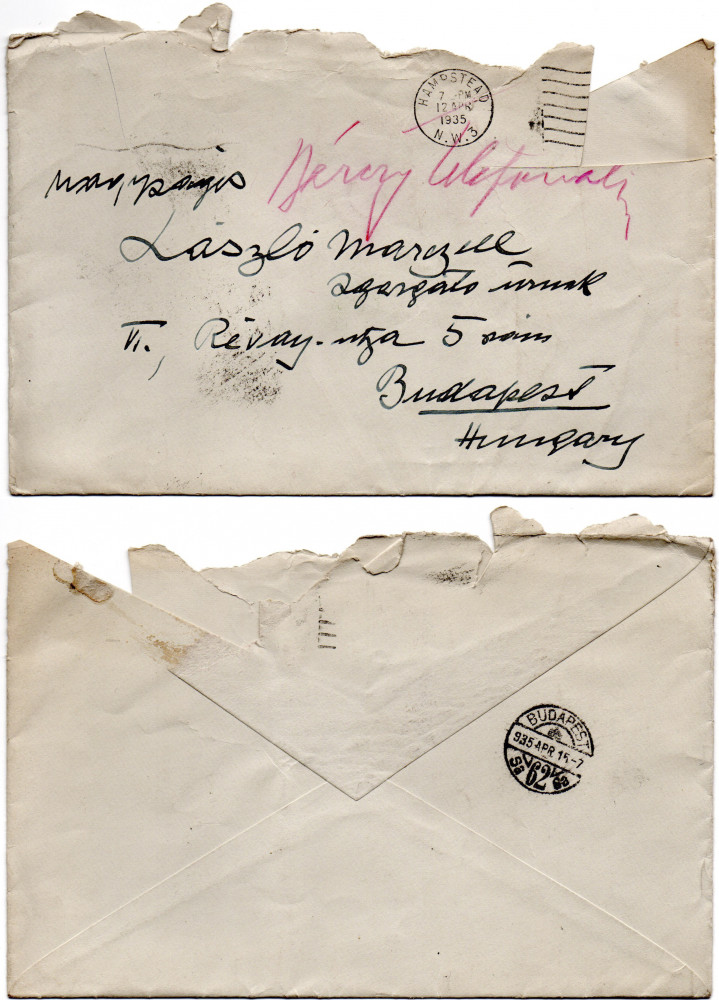 HAMPSTEAD
7 - PM
12 APR
1935
N.W.3
Nagyságos
Bérczy telefonált
László Marczell
igazgató úrnak
VI., Révay-utca 5 szám
Budapest
Hungary
BUDAPEST
935 APR 15-7
62